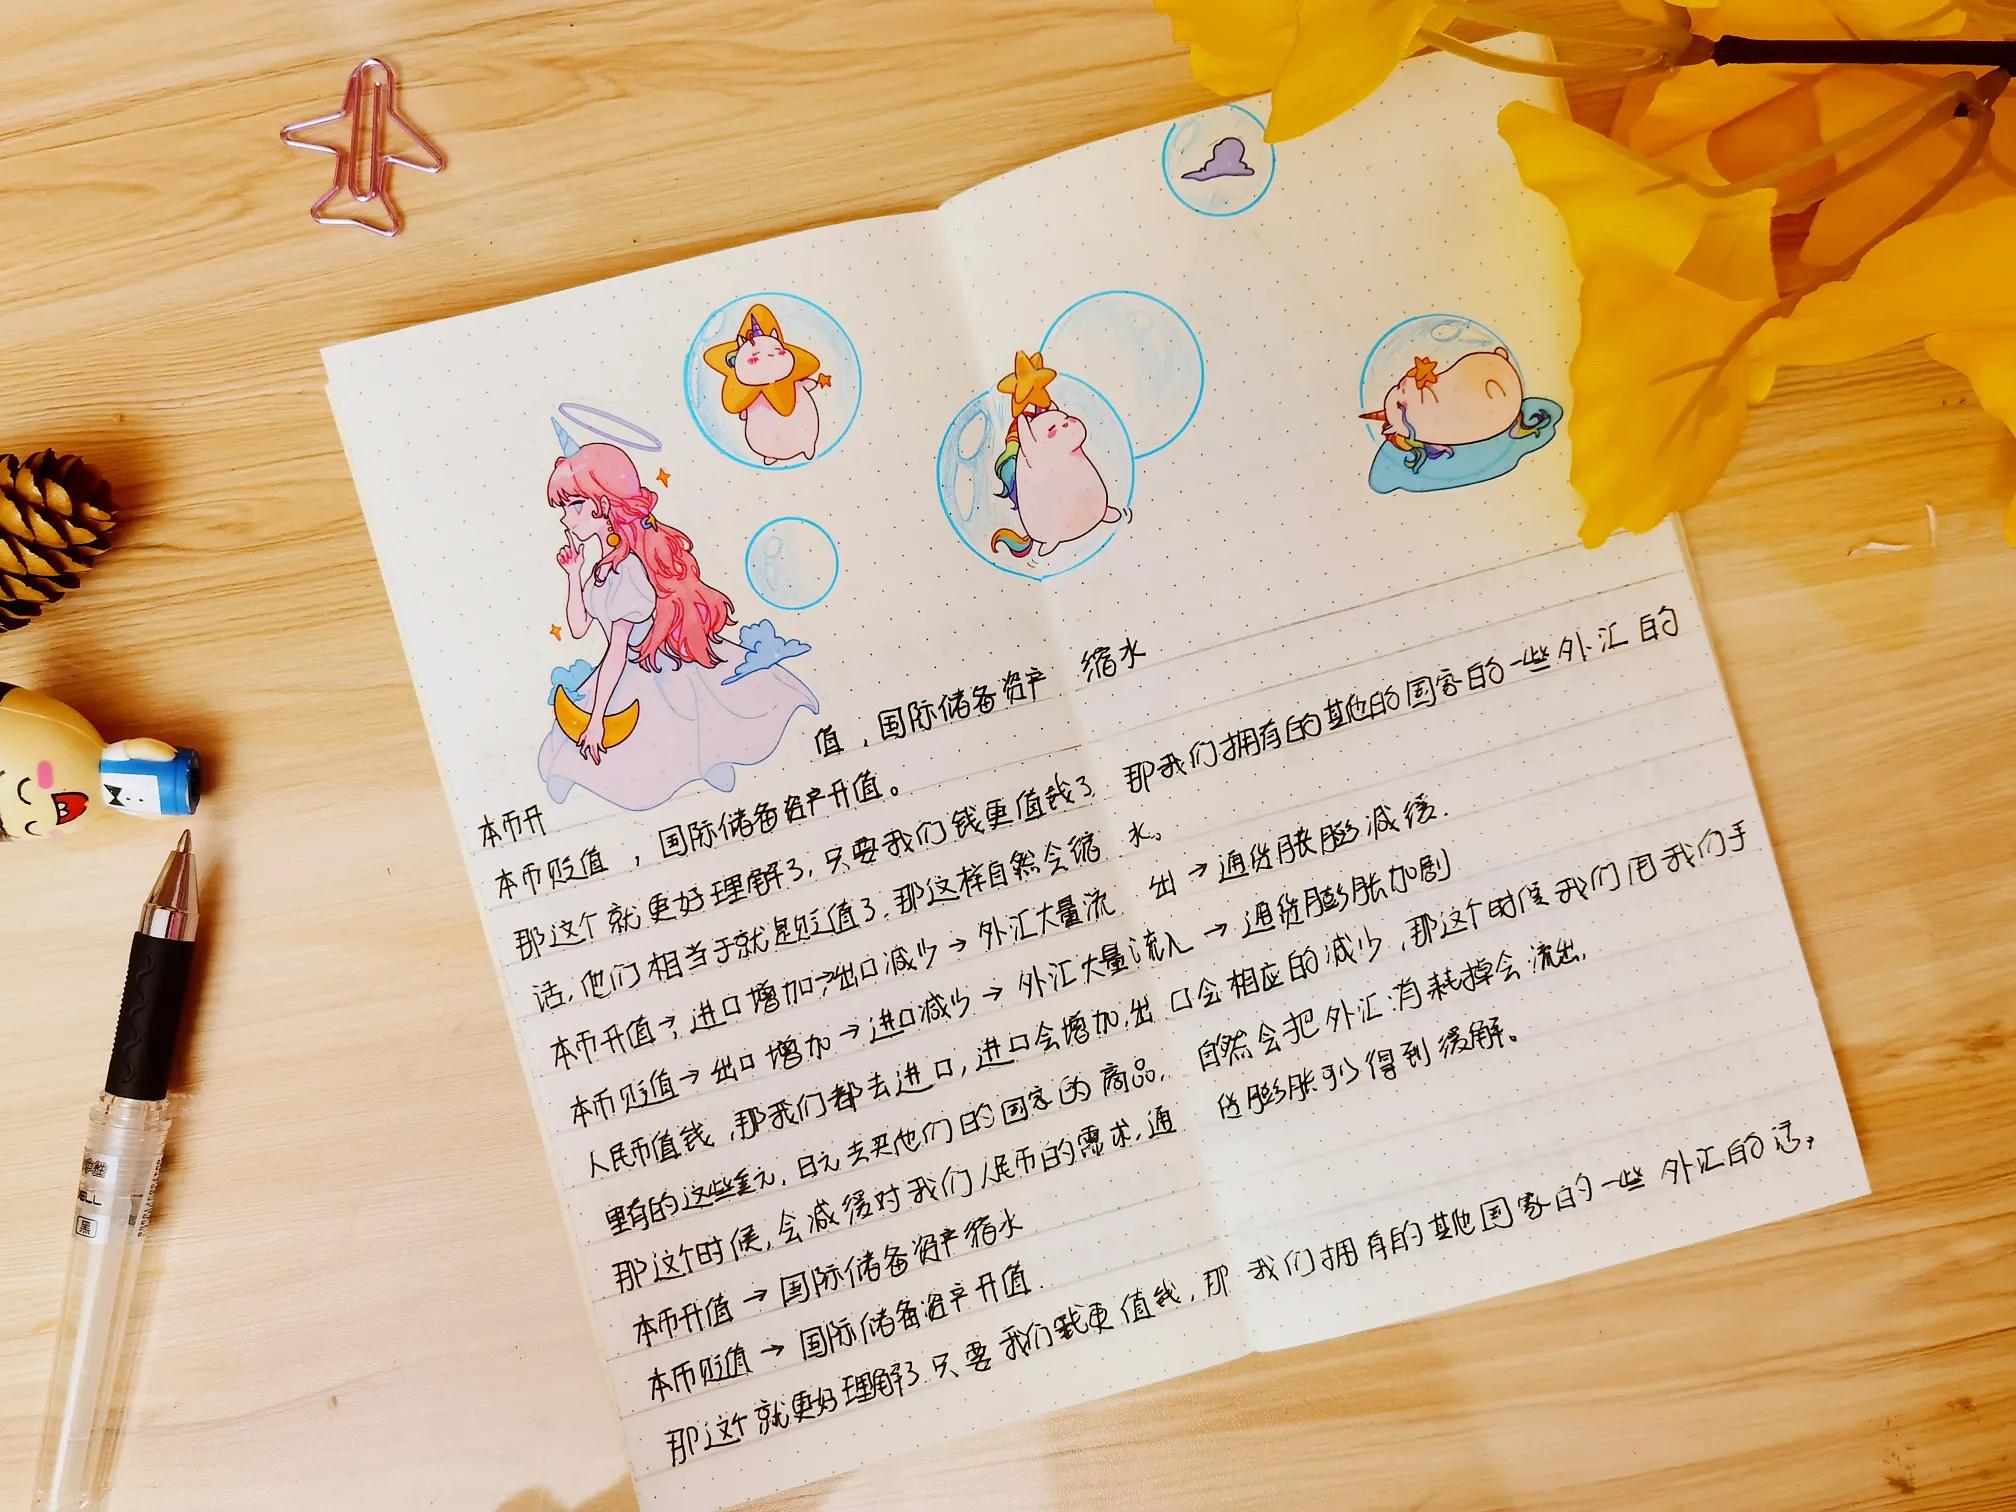 本币升值，国际储备资产缩水
本币贬值，国际储备资产升值。
那这个就更好理解了，只要我们钱更值钱了，那我们拥有的其他的国家的一些外汇的
话，他们相当于就是贬值了，那这样自然会缩水。
本币升值→进口增加→出口减少→外汇大量流出→通货膨胀减缓.
本币贬值→出口增加→进口减少→外汇大量流入→通货膨胀加剧
人民币值钱，那我们都去进口，进口会增加，出口会相应的减少，那这个时候我们用我们手
里有的这些美元，日元去买他们的国家的商品，自然会把外汇消耗掉会流出，
那这个时候，会减缓对我们人民币的需求，通货膨胀可以得到缓解。
本币升值→国际储备资产缩水
本币贬值→国际储备资产升值.
那这个就更好理解了只要我们钱更值钱，那我们拥有的其他国家的一些外汇的话，
黑